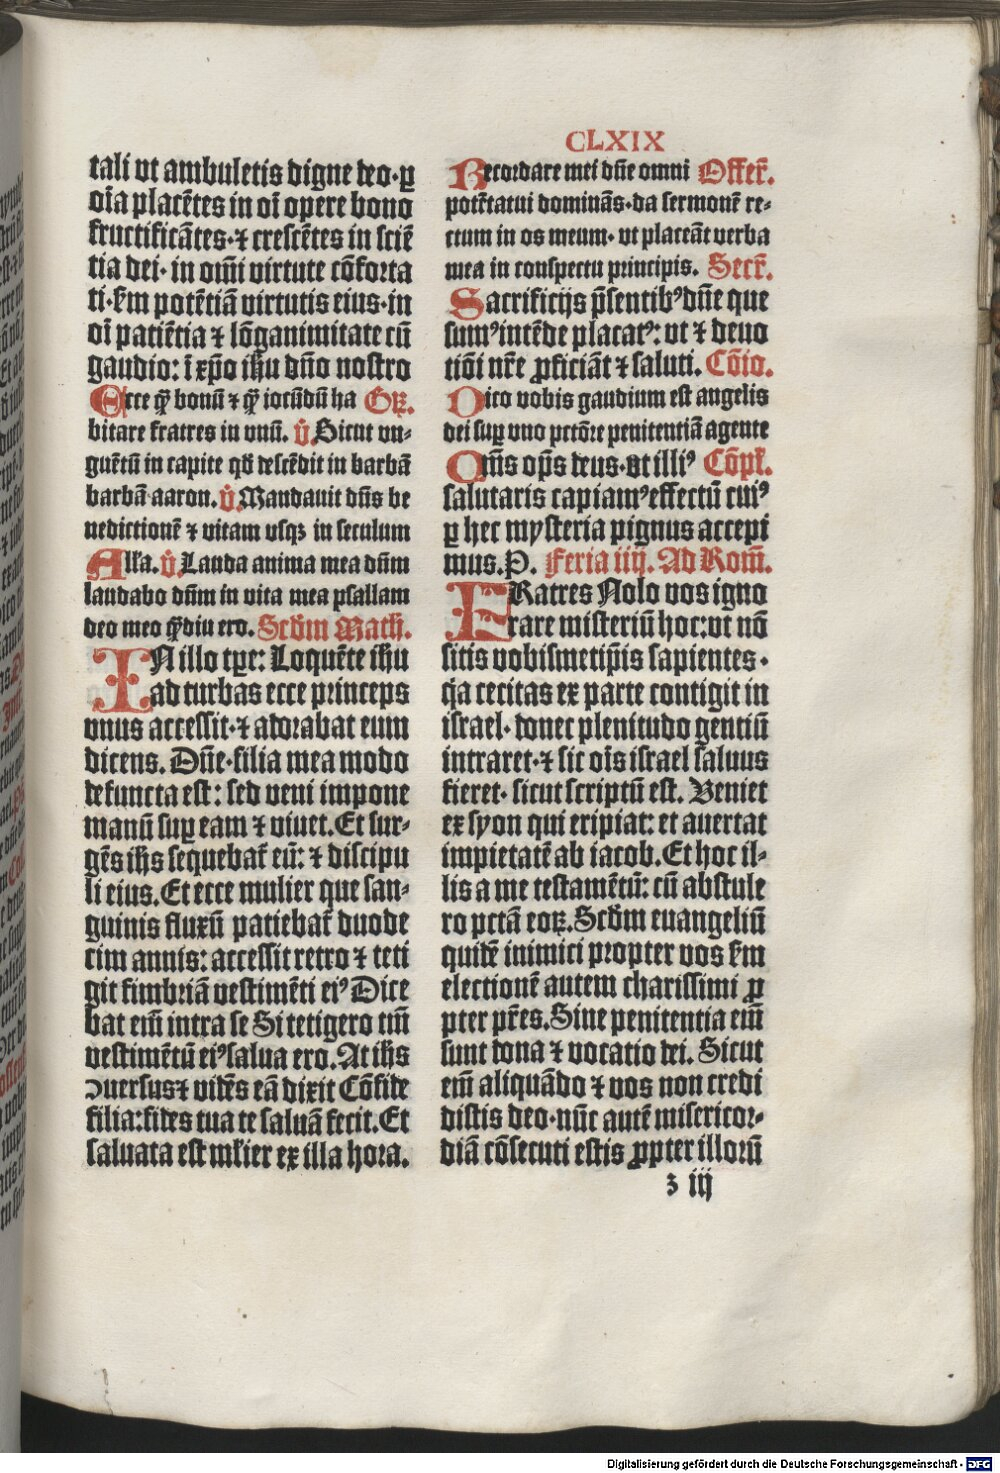 CLXIX
tali vt ambuletis digne deo·ꝑ
oīa placētes in oī opere bono
fructificātes·⁊ crescētes in sciē
tia dei· in om̄i virtute cōforta
ti·ẜm potētiā virtutis eius·in
oī patiētia ⁊ lōganimitate cū
gaudio: ī xp̄o ihū dn̄o nostro
Ecce q̄ꝫ bonū ⁊ q̄ꝫ iocūdū ha Gꝝ.
bitare fratres in vnū. v̊. Sicut vn⸗
guētū in capite qd̄ descēdit in barbā
barbā aaron. v̊. Mandauit dn̄s be
nedictionē ⁊ vitam vsqꝫ in seculum
Alla. v̊. Lauda anima mea dn̄m
laudabo dn̄m in vita mea psallam
deo meo q̄ꝫdiu ero. Scd̄m Math.
IN illo tꝑe: Loquēte ihū
ad turbas ecce princeps
vnus accessit·⁊ adorabat eum
dicens. Dn̄e·filia mea modo
defuncta est: sed veni impone
manū suꝑ eam ⁊ viuet. Et sur⸗
gēs ihs̄ sequebat᷑ eū: ⁊ discipu
li eius. Et ecce mulier que san⸗
guinis fluxū patiebat᷑ duode
cim annis: accessit retro ⁊ teti
git fimbriā vestimēti eiꝰ Dice
bat em̄ intra se Si tetigero tm̄
vestimētū eiꝰ salua ero. At ihs̄
ↄuersus ⁊ vidēs eā dixit Cōfide
filia: fides tua te saluā fecit. Et
saluata est ml̄ier ex illa hora.
Recordare mei dn̄e omni Offer᷑.
potētatui dominās·da sermonē re⸗
ctum in os meum· vt placeāt verba
mea in conspectu principis. Secr᷑.
Sacrificijs p̄sentibꝰ dn̄e que
sumꝰ intēde placatꝰ: vt ⁊ deuo
tiōi nr̄e ꝓficiāt ⁊ saluti. Cōio.
Dico vobis gaudium est angelis
dei suꝑ vno pctōre penitentiā agente
Om̄s op̄s deus·vt illiꝰ Cōpl᷑.
salutaris capiamꝰ effectū cuiꝰ
ꝑ hec mysteria pignus accepi
mus. P. Feria iiij. Ad Rom̄.
FRatres Nolo vos igno
rare misteriū hoc: vt nō
sitis vobismetip̄is sapientes·
q̄a cecitas ex parte contigit in
israel· donec plenitudo gentiū
intraret·⁊ sic oīs israel saluus
fieret· sicut scriptū est. Veniet
ex syon qui eripiat: et auertat
impietatē ab iacob. Et hoc il⸗
lis a me testamētū: cū abstule
ro pctā eoꝝ. Scd̄m euangeliū
quidē inimici propter vos ẜm
electionē autem charissimi ꝓ
pter pr̄es. Sine penitentia em̄
sunt dona ⁊ vocatio dei. Sicut
em̄ aliquādo ⁊ vos non credi
distis deo·nūc autē misericor⸗
diā cōsecuti estis ꝓpter illorū
z iij
Digitalisierung gefördert durch die Deutsche Forschungsgemeinschaft - DFG